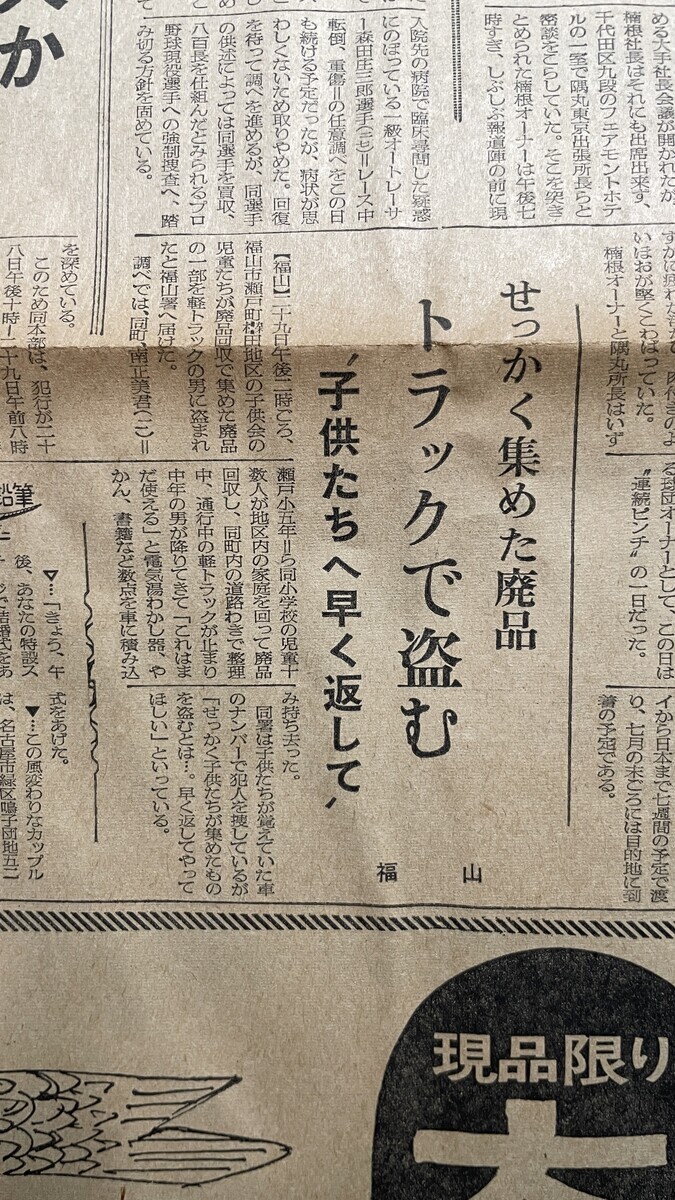 める大手社長会議が開かれたが
楠根社長はそれにも出席出来ず、
千代田区九段のフェアモントホテ
ルの一室で隅丸東京出張所長らと
密談をこらしていた。そこを突き
とめられた楠根オーナーは午後七
時すぎ、しぶしぶ報道陣の前に現
入院先の病院で臨床尋問した疑惑
にのぼっている一級オートレーサ
ー森田庄三郎選手(三七)=レース中
転倒、重傷=の任意調べをこの日
も続ける予定だったが、病状が思
わしくないため取りやめた。回復
を待って調べを進めるが、同選手
の供述によっては同選手を買収、
八百長を仕組んだとみられるプロ
野球現役選手への強制捜査へ、踏
み切る方針を固めている。
いほおが堅くこわばっていた。
楠根オーナーと隅丸所長はいず
る球団オーナーとして、この日は
“連続ピンチ”の一日だった。
イから日本まで七週間の予定で渡
り、七月の末ごろには目的地に到
着の予定である。
せっかく集めた廃品
トラックで盗む
“子供たちへ早く返して”
福山
【福山】二十九日午後二時ごろ、
福山市瀬戸町地区の子供会の
児童たちが廃品回収で集めた廃品
の一部を軽トラックの男に盗まれ
たと福山署へ届けた。
調べでは、同町、南正美君(一二)=
瀬戸小五年=ら同小学校の児童十
数人が地区内の家庭を回って廃品
回収し、同町内の道路わきで整理
中、通行中の軽トラックが止まり
中年の男が降りてきて「これはま
だ使える」と電気湯わかし器、や
かん、書籍など数点を車に積み込
み持ち去った。
同署は子供たちが覚えていた車
のナンバーで犯人を捜しているが
「せっかく子供たちが集めたもの
を盗むとは…。早く返してやって
ほしい」といっている。
を深めている。
このため同本部は、犯行が二十
八日午後十時-二十九日午前八時
鉛筆
▼…「きょう、午
後、あなたの特設ス
式をあげた。
▼…この風変わりなカップル
は、名古屋市緑区鳴子団地五二
現品限り